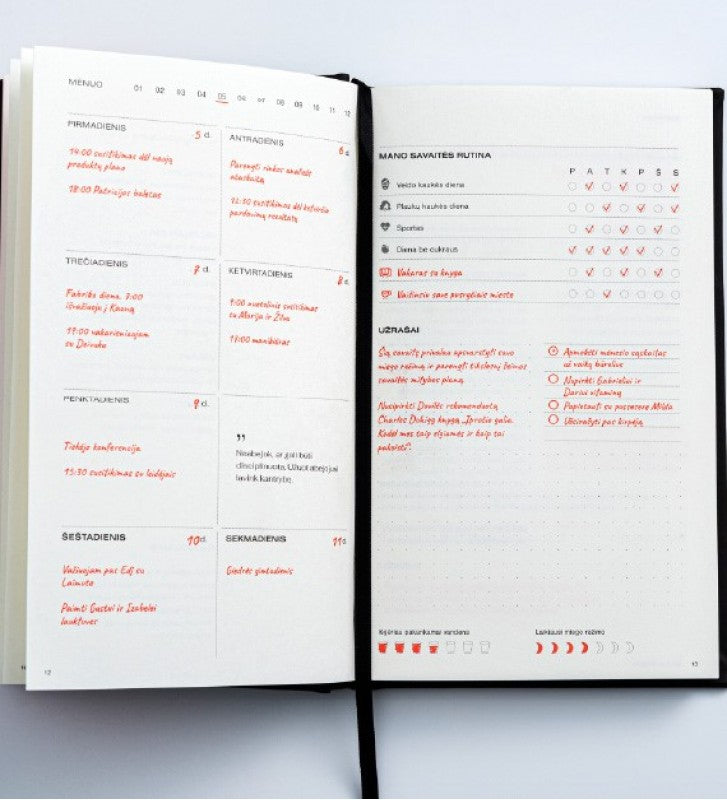 MĖNUO 01 02 03 04 05 06 07 08 09 10 11 12
PIRMADIENIS 5 d.
14:00 susitikimas dėl naujų
produktų plano
18:00 Patricijos baletas
ANTRADIENIS 6 d.
Parengti rinkos analizės
ataskaitą
11:30 susitikimas dėl ketvirčio
pardavimų rezultatų
TREČIADIENIS 7 d.
Fabriko diena. 7:00
išvažiuoju į Kauną
19:00 vakarieniaujam
su Deivuku
KETVIRTADIENIS 8 d.
9:00 nuotolinis susitikimas
su Marija ir Žilva
17:00 manikiūras
PENKTADIENIS 9 d.
Tiekėjo konferencija
15:30 susitikimas su leidėjais
”
Neabejok, ar gali būti
disciplinuota. Užuot abejojusi
lavink kantrybę.
ŠEŠTADIENIS 10 d.
Važiuojam pas Edį su
Laimute
Paimti Gustui ir Izabelei
lauktuves
SEKMADIENIS 11 d.
Giedrės gimtadienis
12
MANO SAVAITĖS RUTINA
P A T K P Š S
Veido kaukės diena
Plaukų kaukės diena
Sportas
Diena be cukraus
Vakaras su knyga
Vaišinsiu save pusryčiais mieste
UŽRAŠAI
Šią savaitę privalau apsvarstyti savo
miego režimą ir parengti tikslesnį šeimos
savaitės mitybos planą.
Nusipirkti Dovilės rekomenduotą
Charles Duhigg knygą „Įpročio galia.
Kodėl mes taip elgiamės ir kaip tai
pakeisti“.
Apmokėti mėnesio sąskaitas
už vaikų būrelius
Nupirkti Gabrieliui ir
Dariui vitaminų
Papietauti su pusesere Milda
Užsirašyti pas kirpėją
Išgėriau pakankamai vandens
Laikiausi miego režimo
13